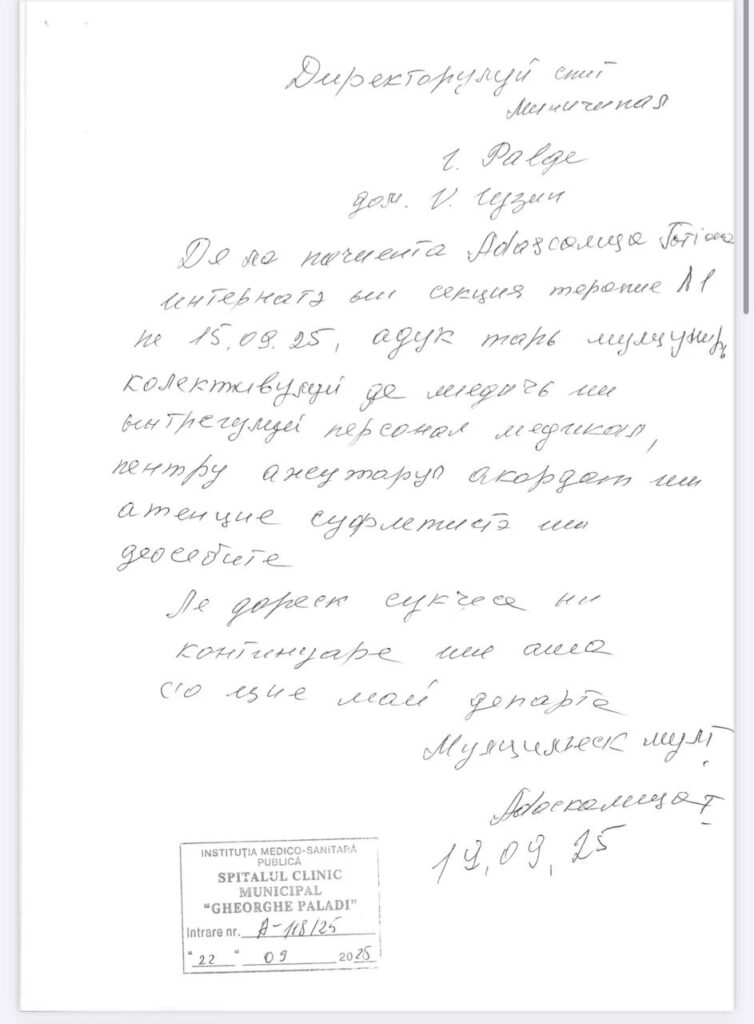 Директорулуй спит
Миничипал
г. Palde
дом. V. Гузин
Дя ла пачиента Adaşcaлица Totiana
интернатэ ын секция терапие №1
пе 15.09.25, адук тарь мулцумирь
колективулуй де медичь ши
ынтрегулуй персонал медикал,
пентру ажутарул акордат ши
атенцие суфлетистэ ши
деосебите
Ле дореск сукчесе ын
континуаре ши аша
с'о цие май департе
Мулцумеск мулт
Adаскалица Т
19.09.25
INSTITUȚIA MEDICO-SANITARĂ
PUBLICĂ
SPITALUL CLINIC
MUNICIPAL
"GHEORGHE PALADI"
Intrare nr. A-118/25
"22" 09 2025